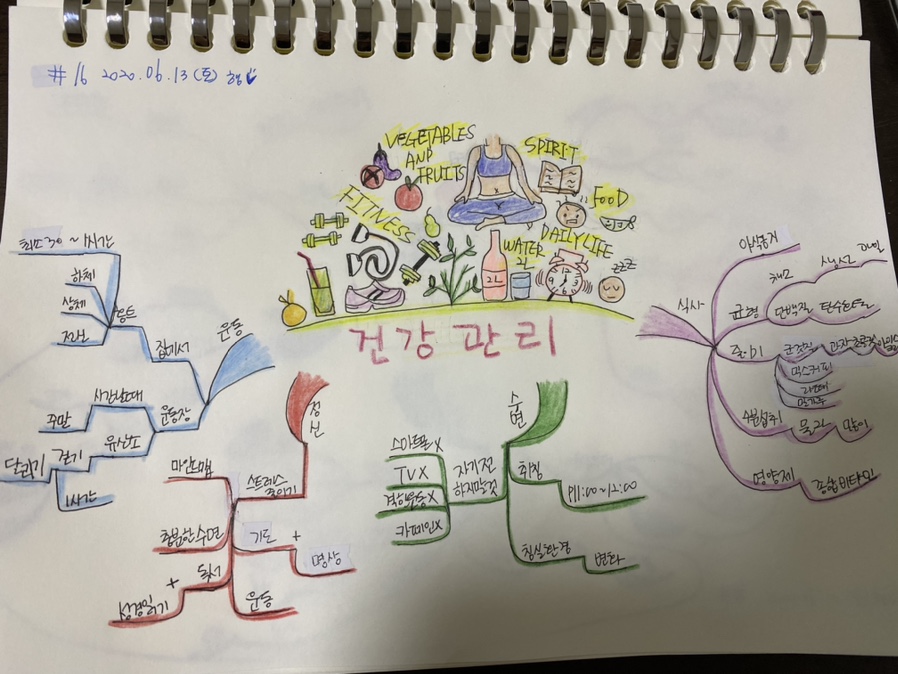 # 16 2020.06.13 (토)
VEGETABLES
AND
FRUITS
SPIRIT
FOOD
FITNESS
WATER
2L
DAILYLIFE
2L
zzz
건강 관리
운동
집에서
홈트
최소 30~1시간
하체
상체
운동장
시간날때
주말
유산소
걷기
달리기
1시간
정신
스트레스
줄이기
마인드맵
충분한 수면
기도
+
명상
독서
+
성경읽기
운동
수면
자기전
하지말것
스마트폰 X
TV X
격한운동 X
카페인 X
취침
P11:00~12:00
침실환경
변화
식사
야식금지
균형
채소
생선
과일
단백질
탄수화물
줄이기
군것질
과자
초콜릿
믹스커피
라떼
수분섭취
물 2L
많이
영양제
종합비타민